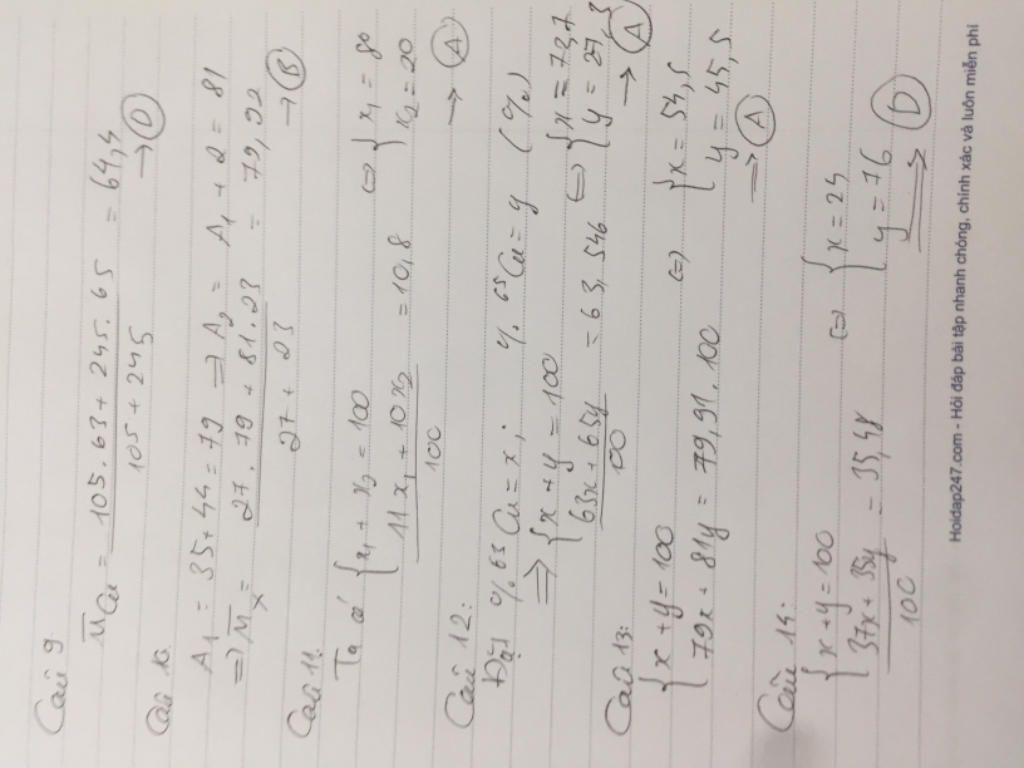 Câu 9
M̄Cu = 105.63 + 245.65 / 105 + 245 = 64,4
→ D
Câu 10.
A1 = 35 + 44 = 79 ⇒ A2 = A1 + 2 = 81
⇒ M̄x = 27.79 + 81.23 / 27 + 23 = 79,92
→ B
Câu 11:
Ta có { x1 + x2 = 100
11x1 + 10x2 / 100 = 10,8
⇔ { x1 = 80
x2 = 20
→ A
Câu 12:
Đặt % 63Cu = x, % 65Cu = y (%)
⇒ { x + y = 100
63x + 65y / 100 = 63,546
⇔ { x = 72,7
y = 27,3
→ A
Câu 13:
{ x + y = 100
79x + 81y = 79,91.100
⇔ { x = 54,5
y = 45,5
⇒ A
Câu 14:
{ x + y = 100
37x + 35y / 100 = 35,48
⇔ { x = 24
y = 76
⇒ D
Hoidap247.com - Hỏi đáp bài tập nhanh chóng, chính xác và luôn miễn phí